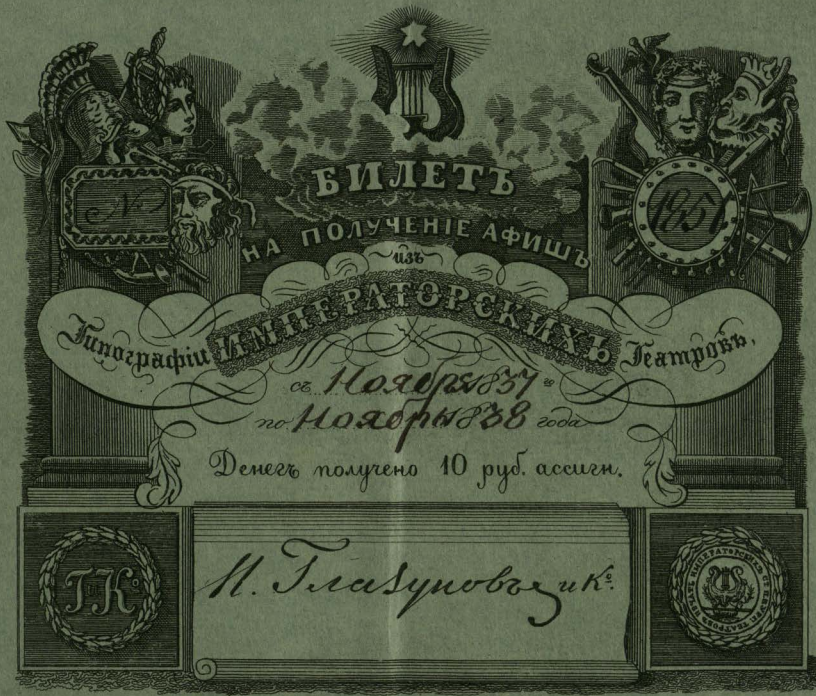 БИЛЕТЪ
НА ПОЛУЧЕНІЕ АФИШЪ
изъ
Типографіи ИМПЕРАТОРСКИХЪ Театровъ.
№
съ Ноября 1837 г
по Ноябрь 1838 года
Денегъ получено 10 руб. ассигн.
И. Глазуновъ и Ко.